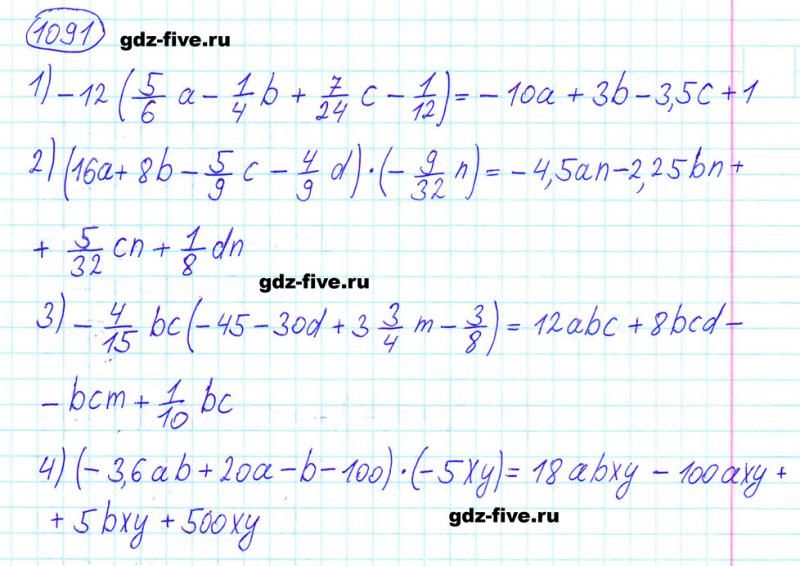 1091 gdz-five.ru
1) -12 (5/6 a - 1/4 b + 7/24 c - 1/12) = -10a + 3b - 3,5c + 1
2) (16a + 8b - 5/9 c - 4/9 d) · (- 9/32 n) = -4,5an - 2,25bn +
+ 5/32 cn + 1/8 dn
gdz-five.ru
3) - 4/15 bc (-45 - 30d + 3 3/4 m - 3/8) = 12abc + 8bcd -
- bcm + 1/10 bc
4) (-3,6ab + 20a - b - 100) · (-5xy) = 18abxy - 100axy +
+ 5bxy + 500xy
gdz-five.ru